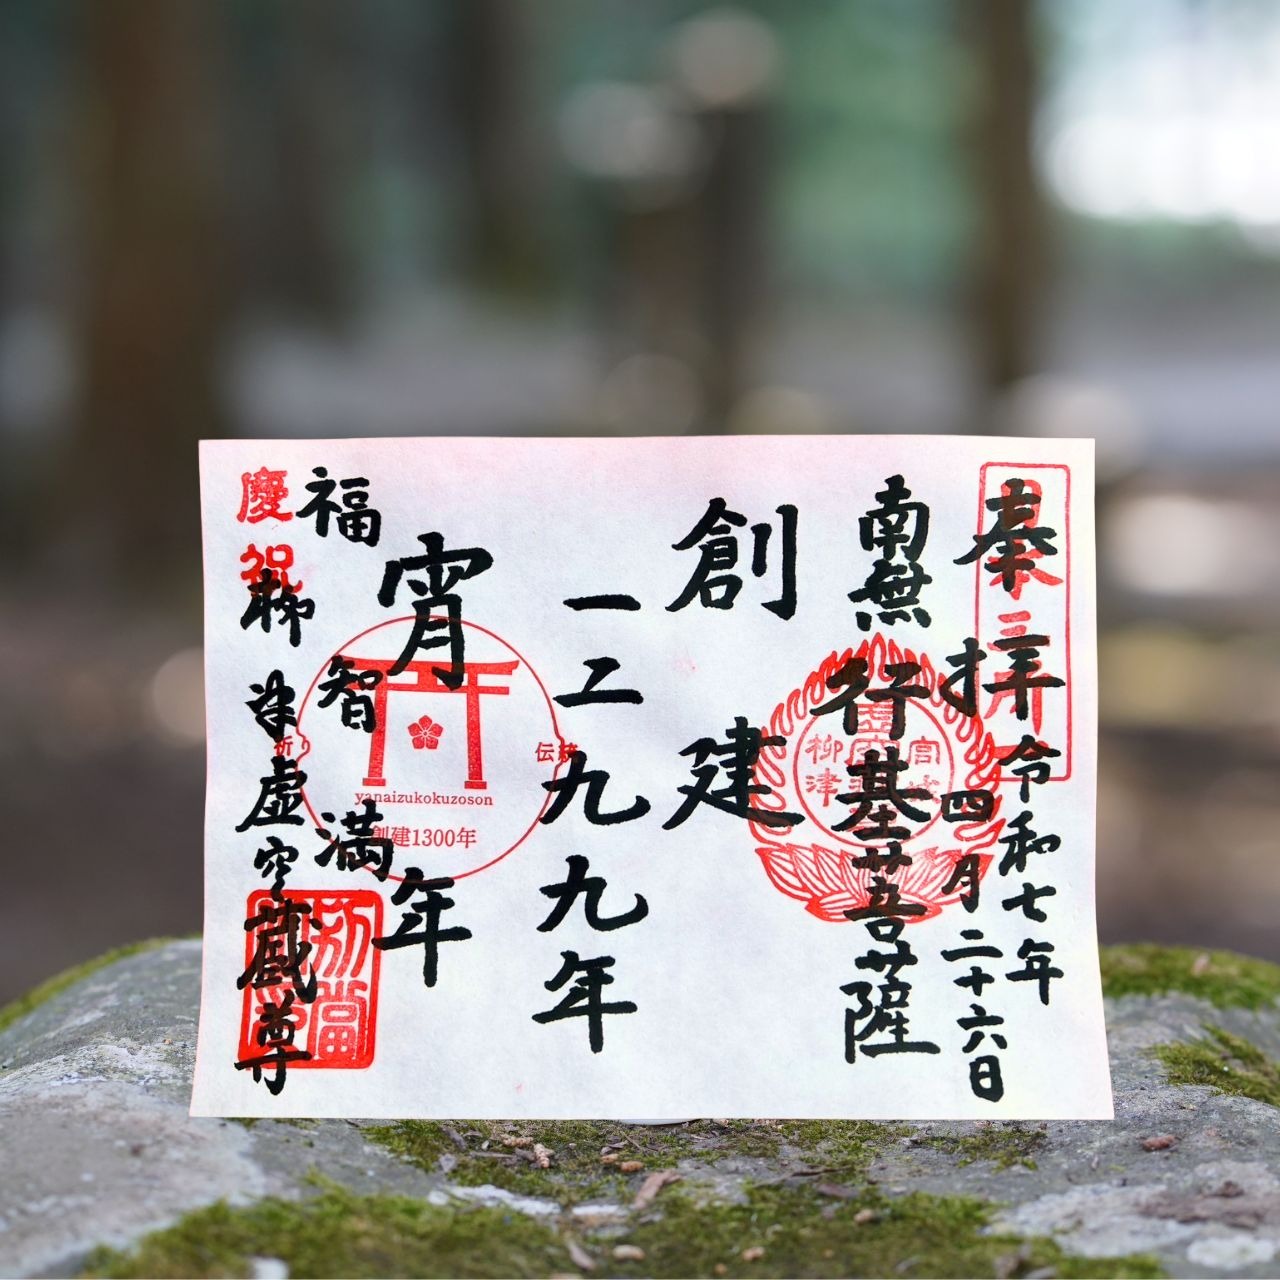 奉拝
令和七年
四月二十六日
南無
行基菩薩
創建
一二九九年
宵年
福智満
柳津虚空蔵尊
慶祝
柳津
宮城
祈り
伝統
yanaizukokuzoson
創建1300年
別當